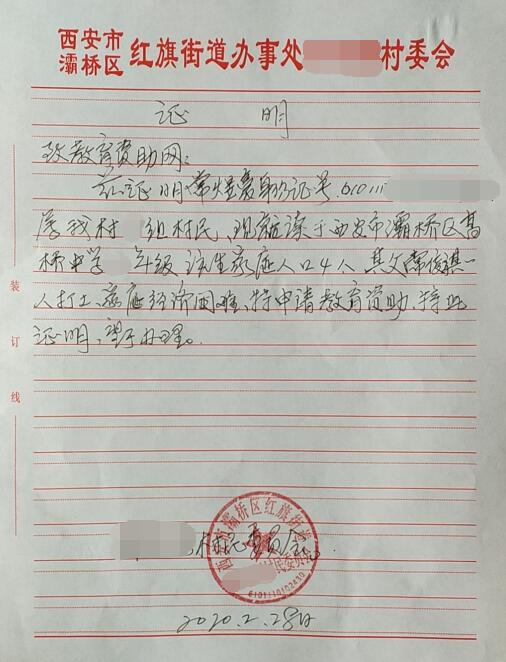 西安市
灞桥区 红旗街道办事处 村委会
证 明
致教育资助网：
兹证明常煜蔓身份证号.610111
居我村 组村民、现就读于西安市灞桥区高
桥中学 年级 该生家庭人口4人 其父常俊祺一
人打工、家庭经济困难、特申请教育资助、特此
证明、望予办理。
装
订
线
村民委员会
西安市灞桥区红旗街道
民委员会
6101110102430
2020.2.28日